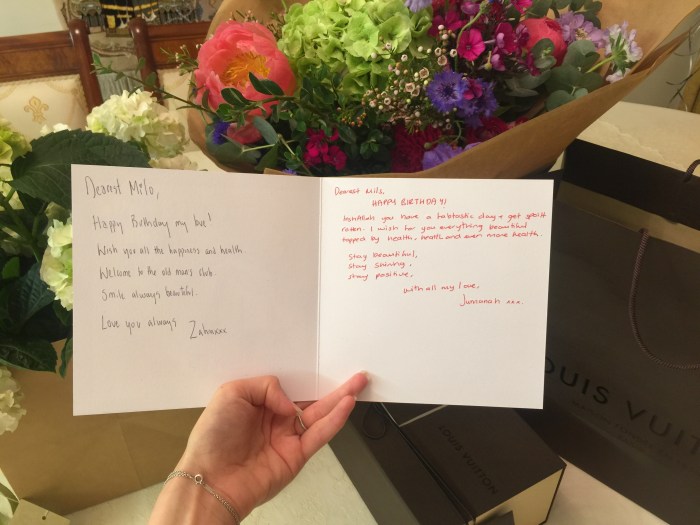 Dearest Milo,
Happy Birthday my love!
Wish you all the happiness and health.
Welcome to the old mans club.
Smile always beautiful.
Love you always
Zahnxxx
Dearest Milo,
HAPPY BIRTHDAY!
InshAllah you have a habtastic day & get spoilt
rotten. I wish for you everything beautiful
topped by health, health and even more health.
Stay beautiful,
Stay shining,
Stay positive,
with all my love,
Jumanah xxx.
LOUIS VUITTON
OUIS VUIT